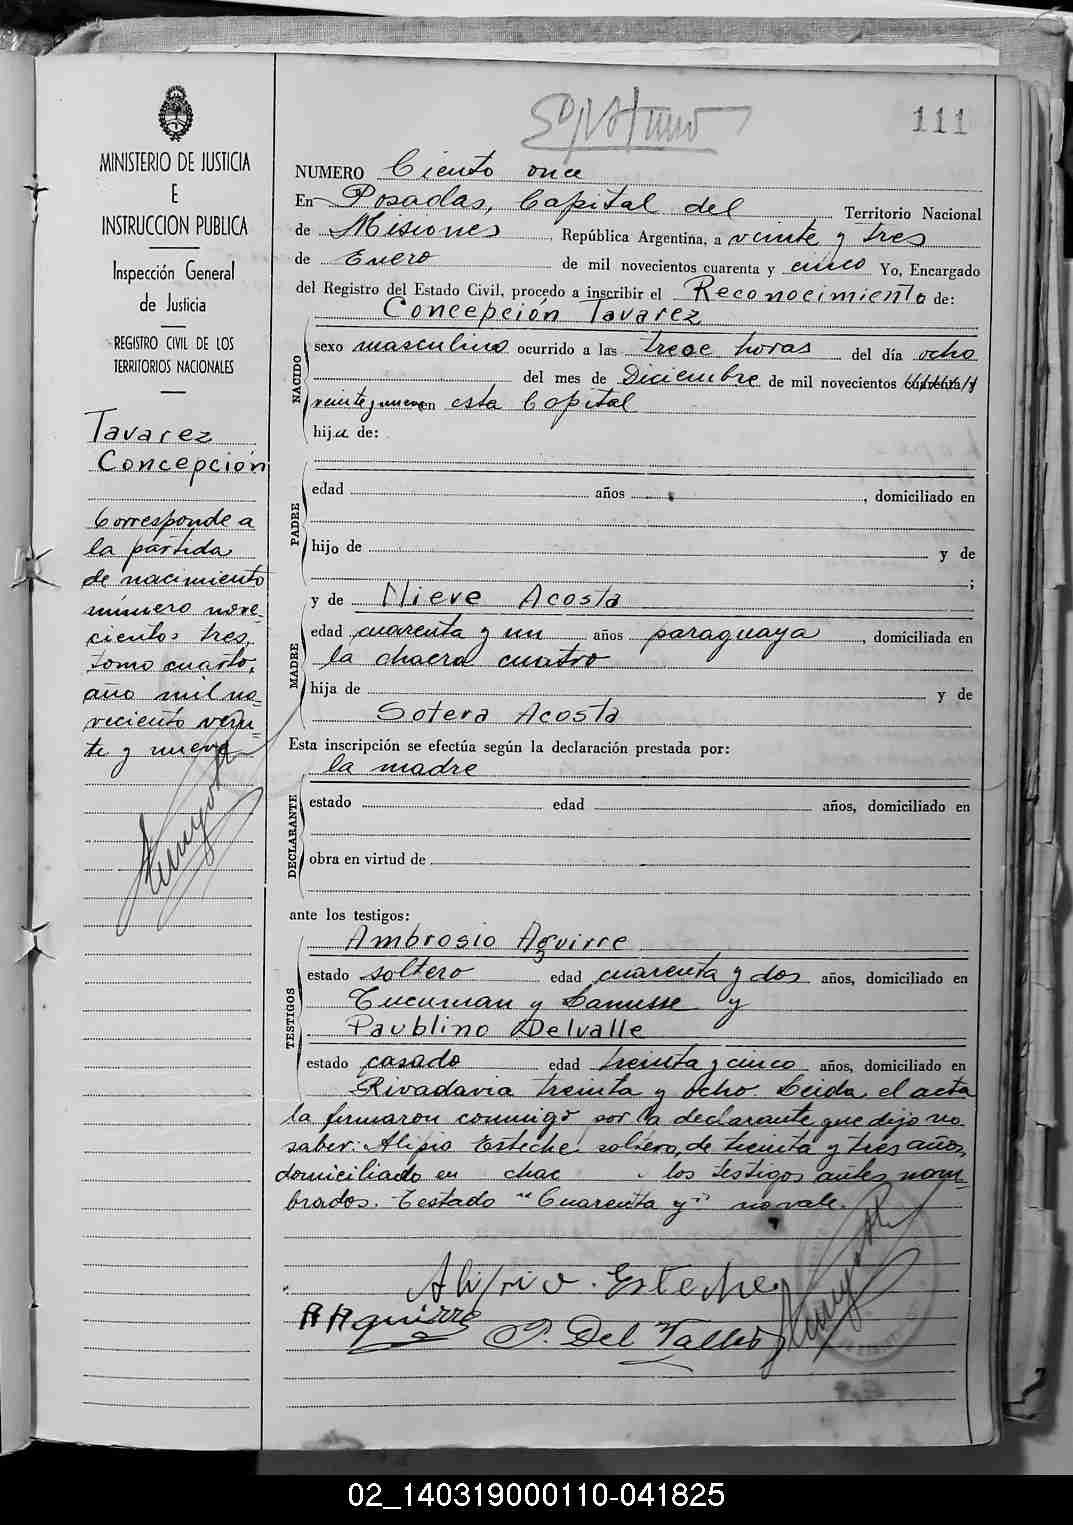 111
MINISTERIO DE JUSTICIA
E
INSTRUCCION PUBLICA
Inspección General
de Justicia
REGISTRO CIVIL DE LOS
TERRITORIOS NACIONALES
Tavarez
Concepción
Corresponde a
la partida
de nacimiento
número nove-
cientos tres,
tomo cuarto,
año mil no-
veciento vein-
te y nueve
NUMERO Ciento once
En Posadas, Capital del Territorio Nacional
de Misiones, República Argentina, a veinte y tres
de Enero de mil novecientos cuarenta y cinco Yo, Encargado
del Registro del Estado Civil, procedo a inscribir el Reconocimiento de:
Concepción Tavarez
NACIDO
sexo masculino ocurrido a las trece horas del día ocho
del mes de Diciembre de mil novecientos cuarenta y
veinte y nueve en esta Capital
hija de:
PADRE
edad años , domiciliado en
hijo de y de
;
y de Nieve Acosta
MADRE
edad cuarenta y un años paraguaya, domiciliada en
la chacra cuatro
hija de y de
Sotera Acosta
Esta inscripción se efectúa según la declaración prestada por:
la madre
DECLARANTE
estado edad años, domiciliado en
obra en virtud de
ante los testigos:
TESTIGOS
Ambrosio Aguirre
estado soltero edad cuarenta y dos años, domiciliado en
Tucuman y Lanusse y
Paublino Delvalle
estado casado edad treinta y cinco años, domiciliado en
Rivadavia treinta y ocho. Leida el acta
la firmaron conmigo por la declarante que dijo no
saber: Alipio Esteche soltero, de treinta y tres años,
domiciliado en chac los testigos antes nom-
brados. Testado "Cuarenta y" no vale.
Alipio Esteche
A Aguirre
P. Del Valle
02_140319000110-041825